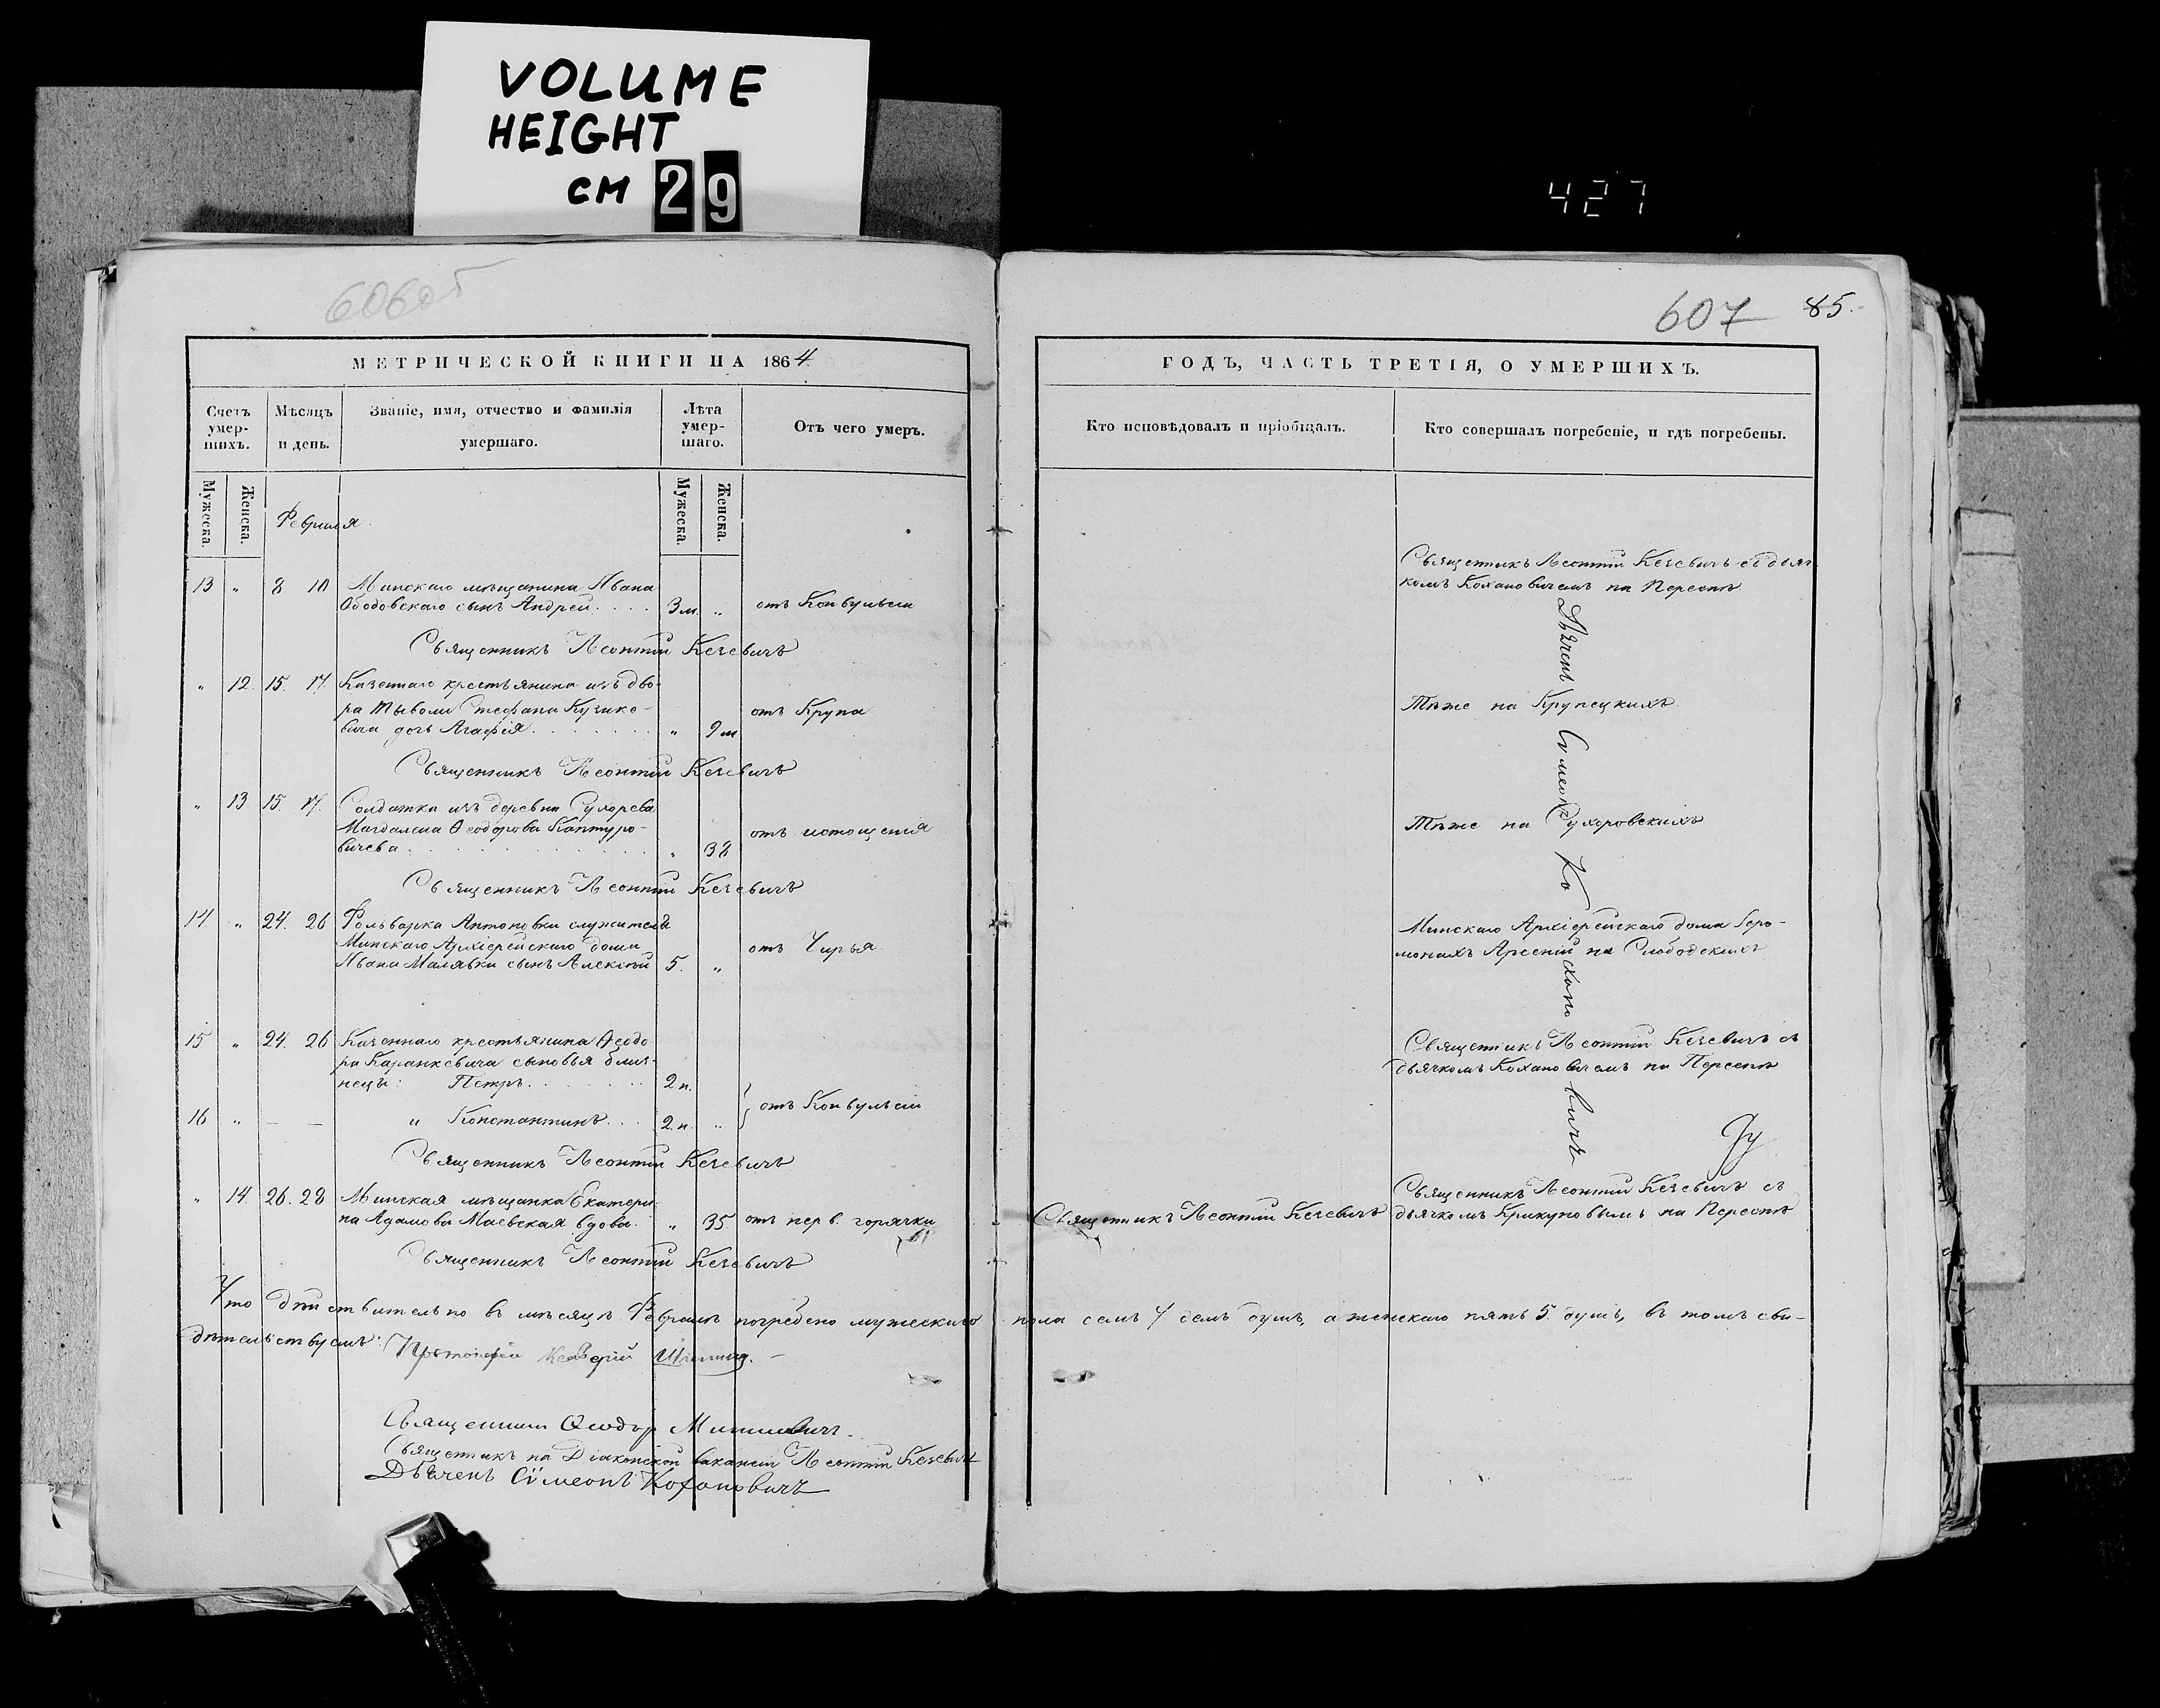 VOLUME
HEIGHT
CM 29
427
606об
МЕТРИЧЕСКОЙ КНИГИ НА 1864
Счетъ умер-
шихъ.
Мѣсяцъ
и день.
Званіе, имя, отчество и фамилія
умершаго.
Лѣта
умер-
шаго.
Отъ чего умеръ.
Мужеска.
Женска.
Февраля
Мужеска.
Женска.
13 " 8 10 Минскаго мѣщанина Ивана
Ободовскаго сынъ Андрей . . . . 3 м. " отъ Конвульсіи
Священникъ Леонтій Кечевичъ
" 12. 15. 17. Казеннаго крестьянина изъ дво-
ра Тыволи Стефана Кузике-
вича дочь Агафія . . . . . . . " 9 м отъ Крупа
Священникъ Леонтій Кечевичъ
" 13 15. 17. Солдатка изъ деревни Сухорева
Магдалена Ѳеодорова Кантуро-
вичева . . . . . . . " 32 отъ истощенія
Священникъ Леонтій Кечевичъ
14 " 24. 26 Фольварка Антоновки служителя
Минскаго Архіерейскаго дома
Ивана Малявки сынъ Алексѣй 5. " отъ Чирья
15 " 24. 26 Казеннаго крестьянина Ѳеодо-
ра Каранкевича сыновья близ-
нецы: Петръ . . . . . . . 2 н.
отъ Конвульсіи
16 " — — и Константинъ . . . 2. н. "
Священникъ Леонтій Кечевичъ
" 14 26. 28 Минская мѣщанка Екатери-
на Адамова Маевская вдова. " 35 отъ нерв. горячки
Священникъ Леонтій Кечевичъ
Что дѣйствительно въ мѣсяцѣ Февралѣ погребено мужескаго
дѣтельствуемъ:
Протоіерей
Священникъ
Священникъ на Діаконской вакансіи Леонтій Кечевичъ
Дьячекъ Сѵмеонъ Кохановичъ
607 85.
ГОДЪ, ЧАСТЬ ТРЕТІЯ, О УМЕРШИХЪ.
Кто исповѣдовалъ и пріобщалъ.
Кто совершалъ погребеніе, и гдѣ погребены.
Священникъ Леонтій Кечевичъ съ дьяч-
комъ Кохановичемъ на Переспѣ
Тѣже на Крупецкихъ
Тѣже на Сухоровскихъ
Минскаго Архіерейскаго дома Іеро-
монахъ Арсеній на Слободскихъ
Священникъ Леонтій Кечевичъ съ
дьячкомъ Кохановичемъ на Переспѣ
Священникъ Леонтій Кечевичъ
Священникъ Леонтій Кечевичъ съ
дьячкомъ Крикуновымъ на Переспѣ
Дьячекъ Сѵмеонъ Кохановичъ
пола семь 7 семъ душъ, а женскаго пять 5. душъ, въ томъ сви-